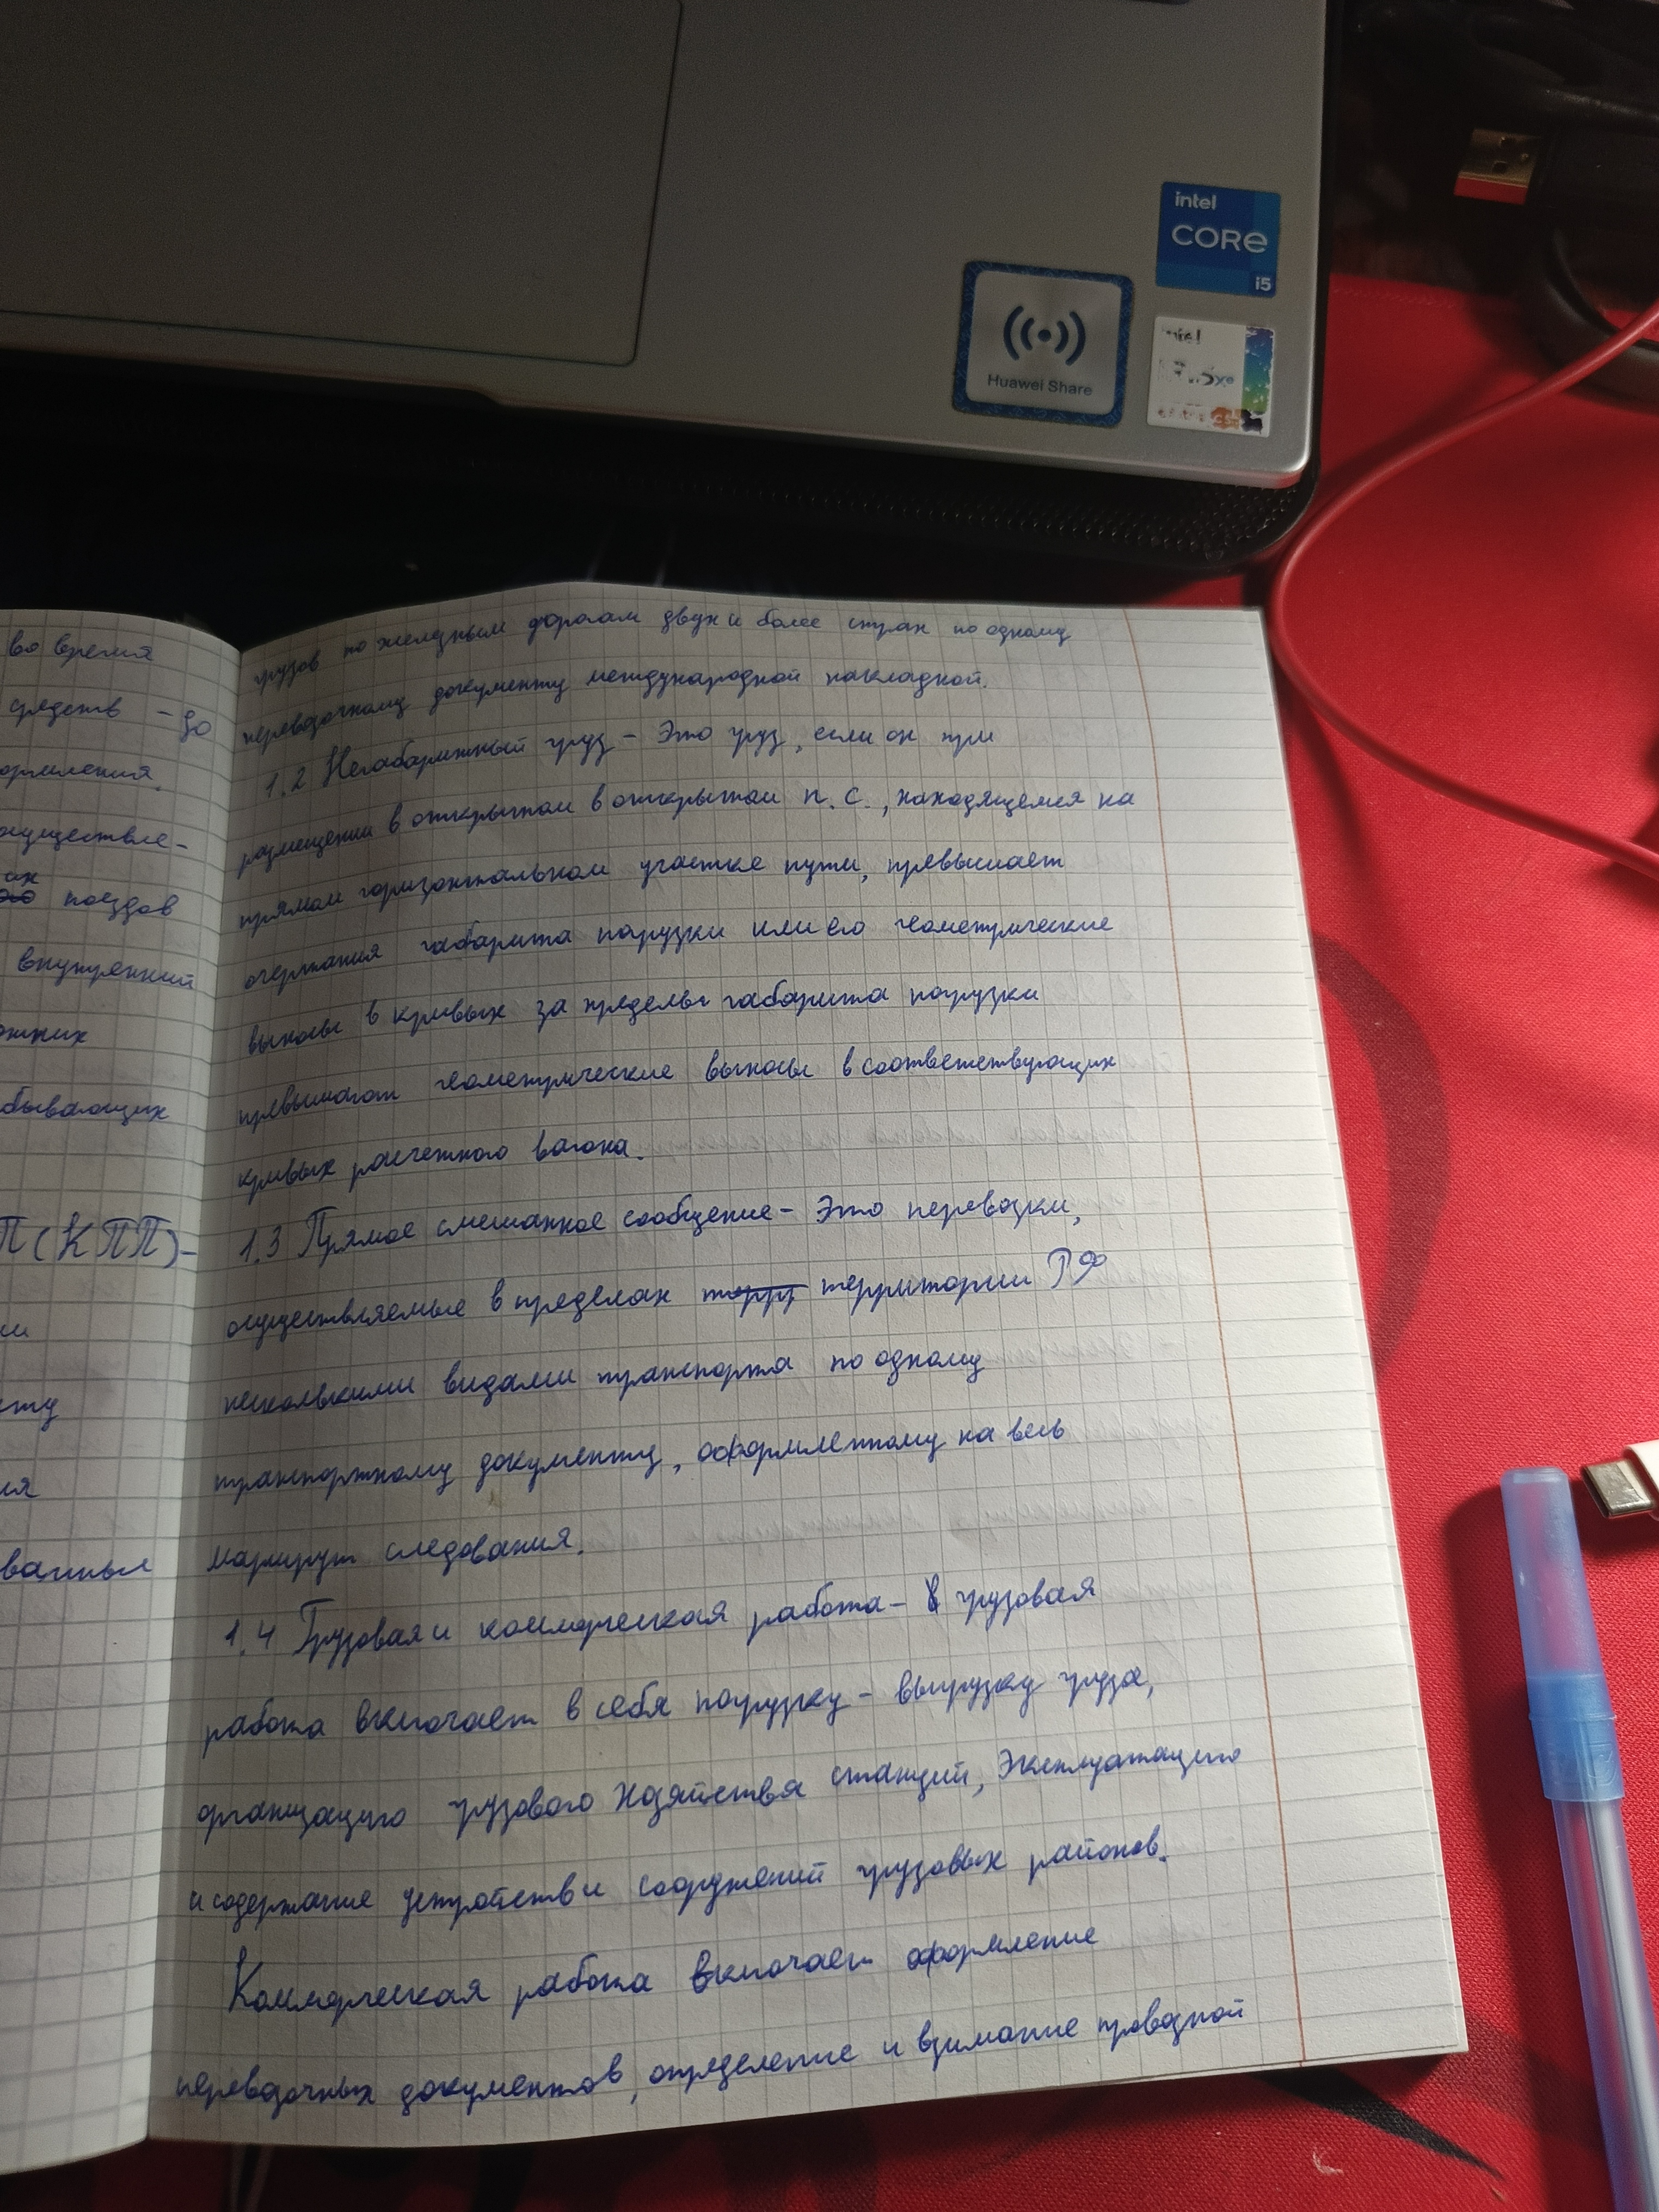 intel
CORE
i5
Huawei Share
intel
Xe
во время
средств - до
ормления.
осуществле-
их
поездов
внутренний
бывающих
П (КПП) -
ванные
грузов по железным дорогам двух и более стран по одному
перевозочному документу международной накладной.
1.2 Негабаритный груз - Это груз, если он при
размещении в открытом в открытом п. с., находящемся на
прямом горизонтальном участке пути, превышает
очертания габарита погрузки или его геометрические
выносы в кривых за пределы габарита погрузки
превышают геометрические выносы в соответствующих
кривых расчетного вагона.
1.3 Прямое смешанное сообщение - Это перевозки,
осуществляемые в пределах территории РФ
несколькими видами транспорта по одному
транспортному документу, оформленному на весь
маршрут следования.
1.4 Грузовая и коммерческая работа - грузовая
работа включает в себя погрузку - выгрузку груза,
организацию грузового хозяйства станций, эксплуатацию
и содержание устройств и сооружений грузовых районов.
Коммерческая работа включает оформление
перевозочных документов, определение и взимание провозной